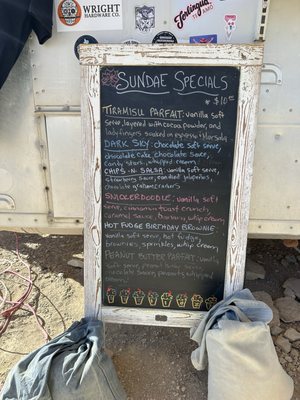 WRIGHT
HARDWARE CO.
Terlingua
TI AMO
SUNDAE SPECIALS
* $10.00
TIRAMISU PARFAIT: vanilla soft
serve, layered with cocoa powder, and
lady fingers soaked in espresso & Marsala
DARK SKY: chocolate soft serve,
chocolate cake, chocolate sauce,
candy stars, whipped cream
CHIPS-N-SALSA: vanilla soft serve,
strawberry sauce, candied jalapeños,
chocolate graham crackers
SNICKERDOODLE: vanilla soft
serve, cinnamon toast crunch,
caramel sauce, whip cream
HOT FUDGE BIRTHDAY BROWNIE
vanilla soft serve, hot fudge,
brownies, sprinkles, whip cream
PEANUT BUTTER PARFAIT: vanilla
soft serve, peanut butter
chocolate sauce, peanuts, whipped
cream